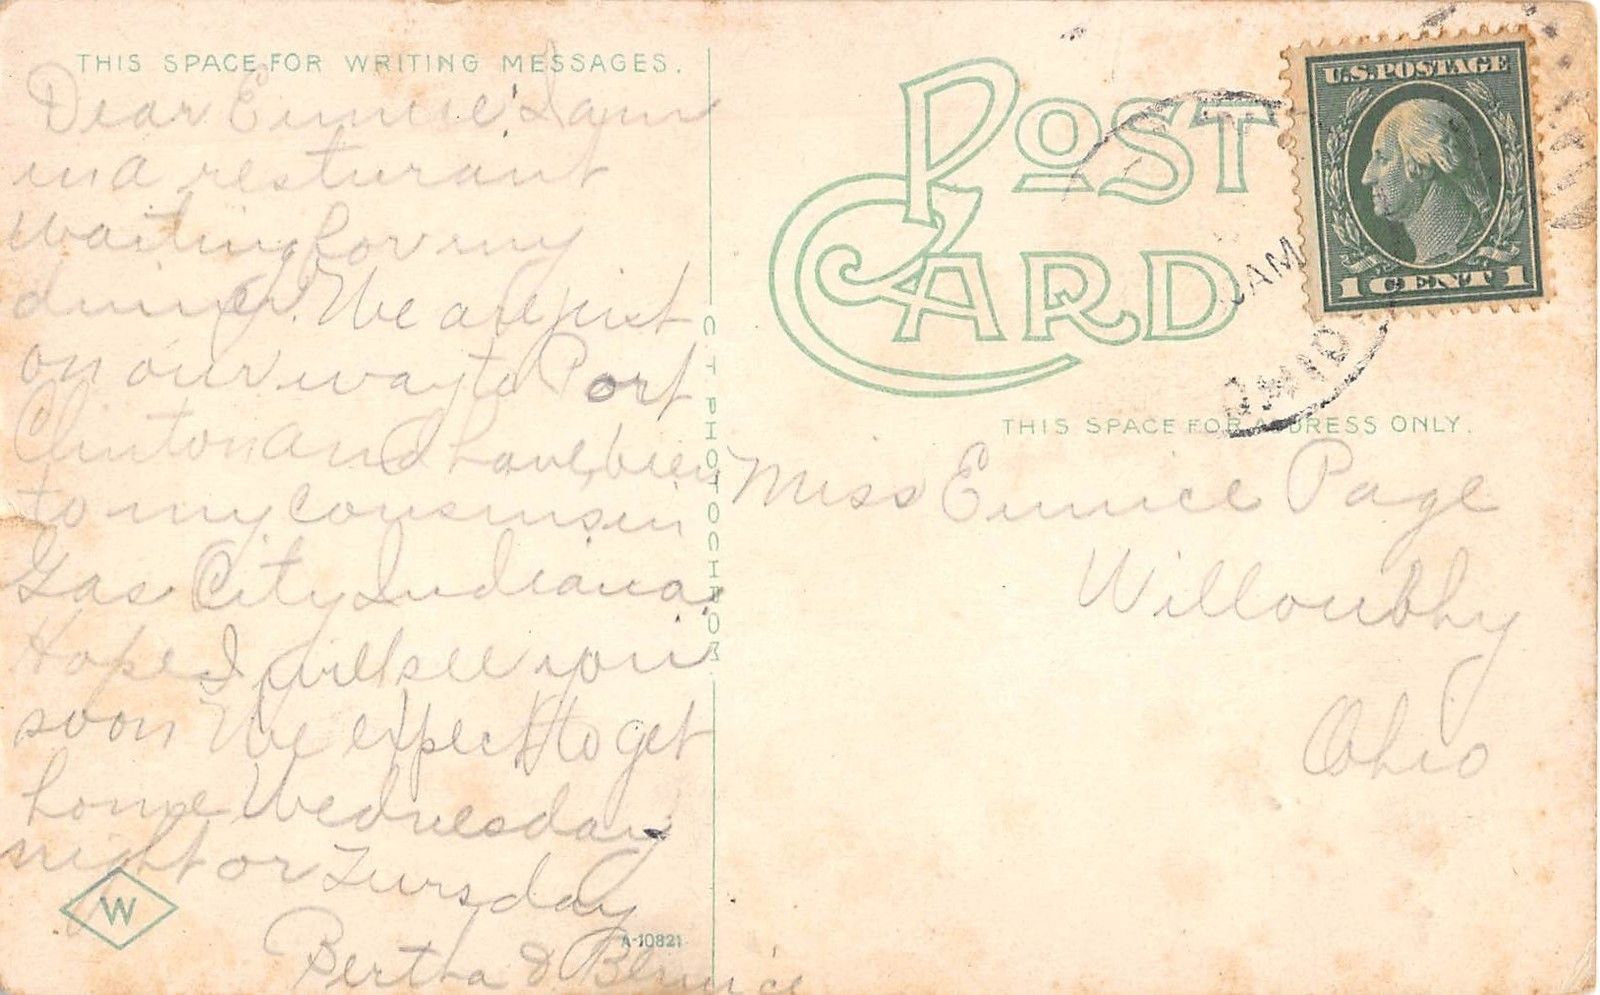 THIS SPACE FOR WRITING MESSAGES.
Dear Eunice I am
in a resturant
waiting for my
dinner. We are just
on our way to Port
Clinton and have been
to my cousins in
Gas City Indiana.
Hope I will see you
soon We expect to get
home Wednesday
night or Tursday
Bertha &
W
A-10821
C T PHOTOCHROM
POST
CARD
U.S. POSTAGE
1 CENT 1
AM
OHIO
THIS SPACE FOR ADDRESS ONLY.
Miss Eunice Page
Willoubhy
Ohio